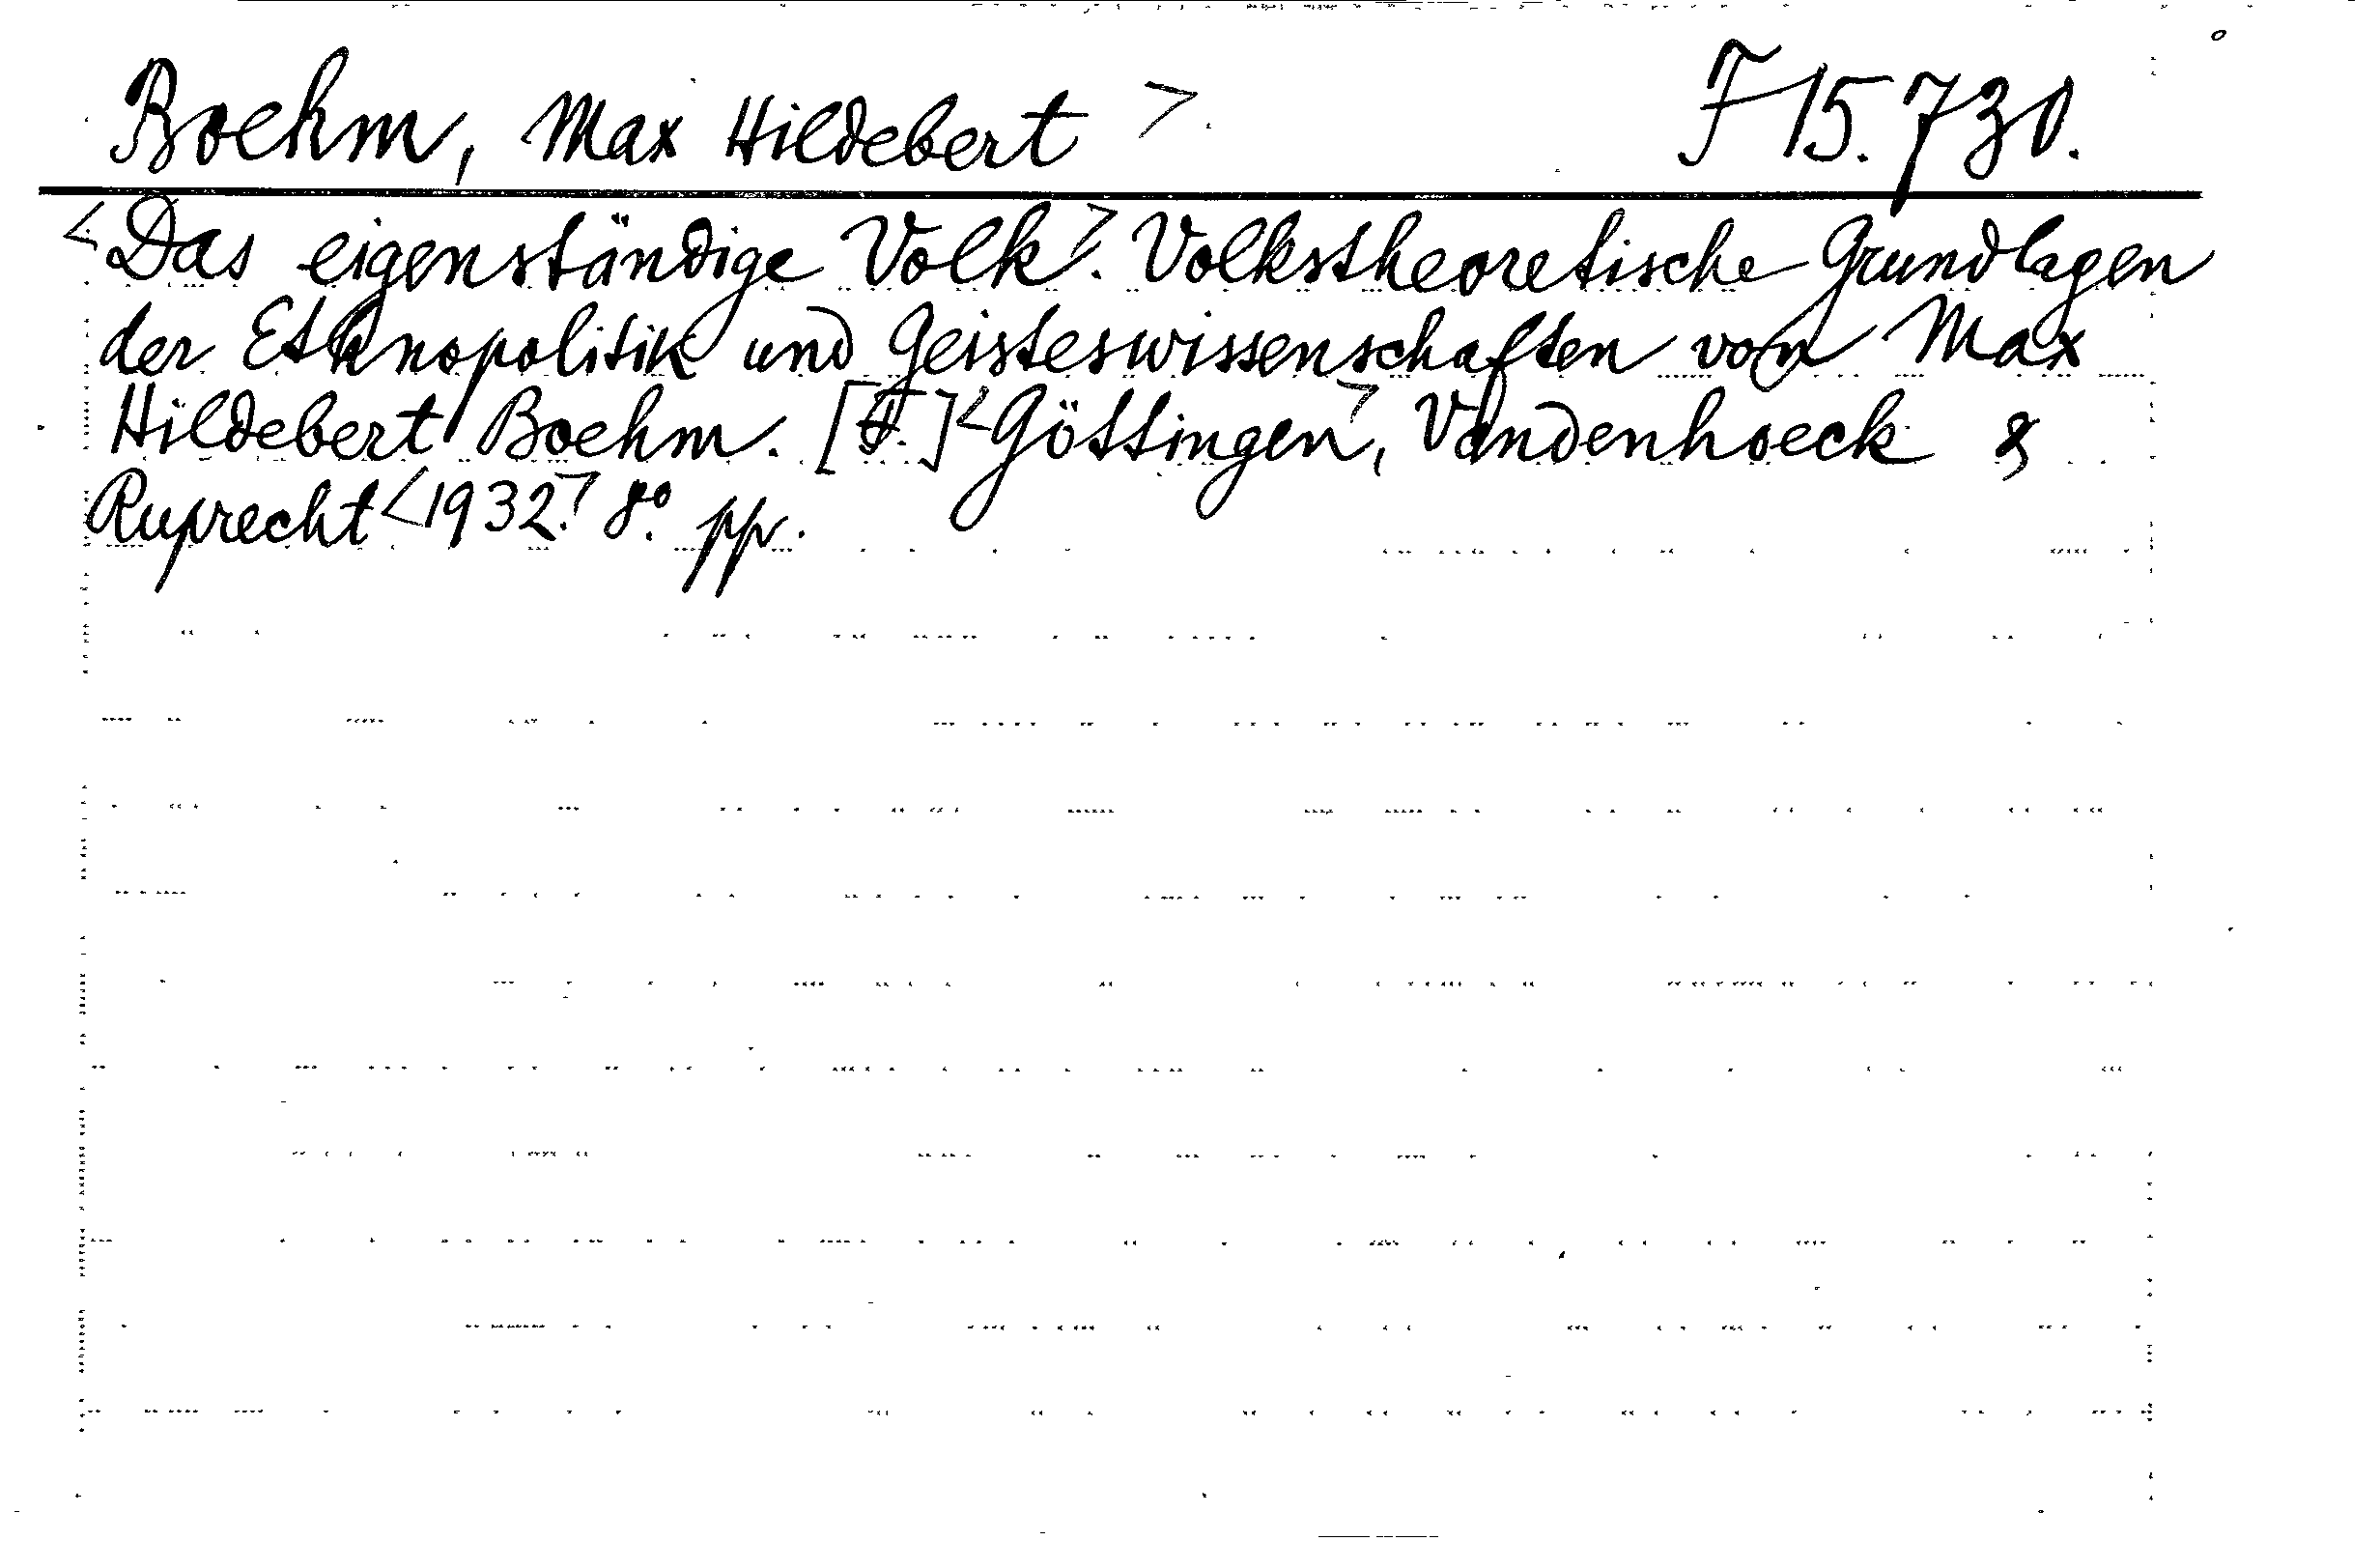 Boehm, Max Hildebert > F 15.730.
<Das eigenständige Volk>. Volkstheoretische Grundlagen
der Ethnopolitik und Geisteswissenschaften von Max
Hildebert Boehm. [F.] <Göttingen>, Vandenhoeck &
Ruprecht <1932.> 8º. pp.